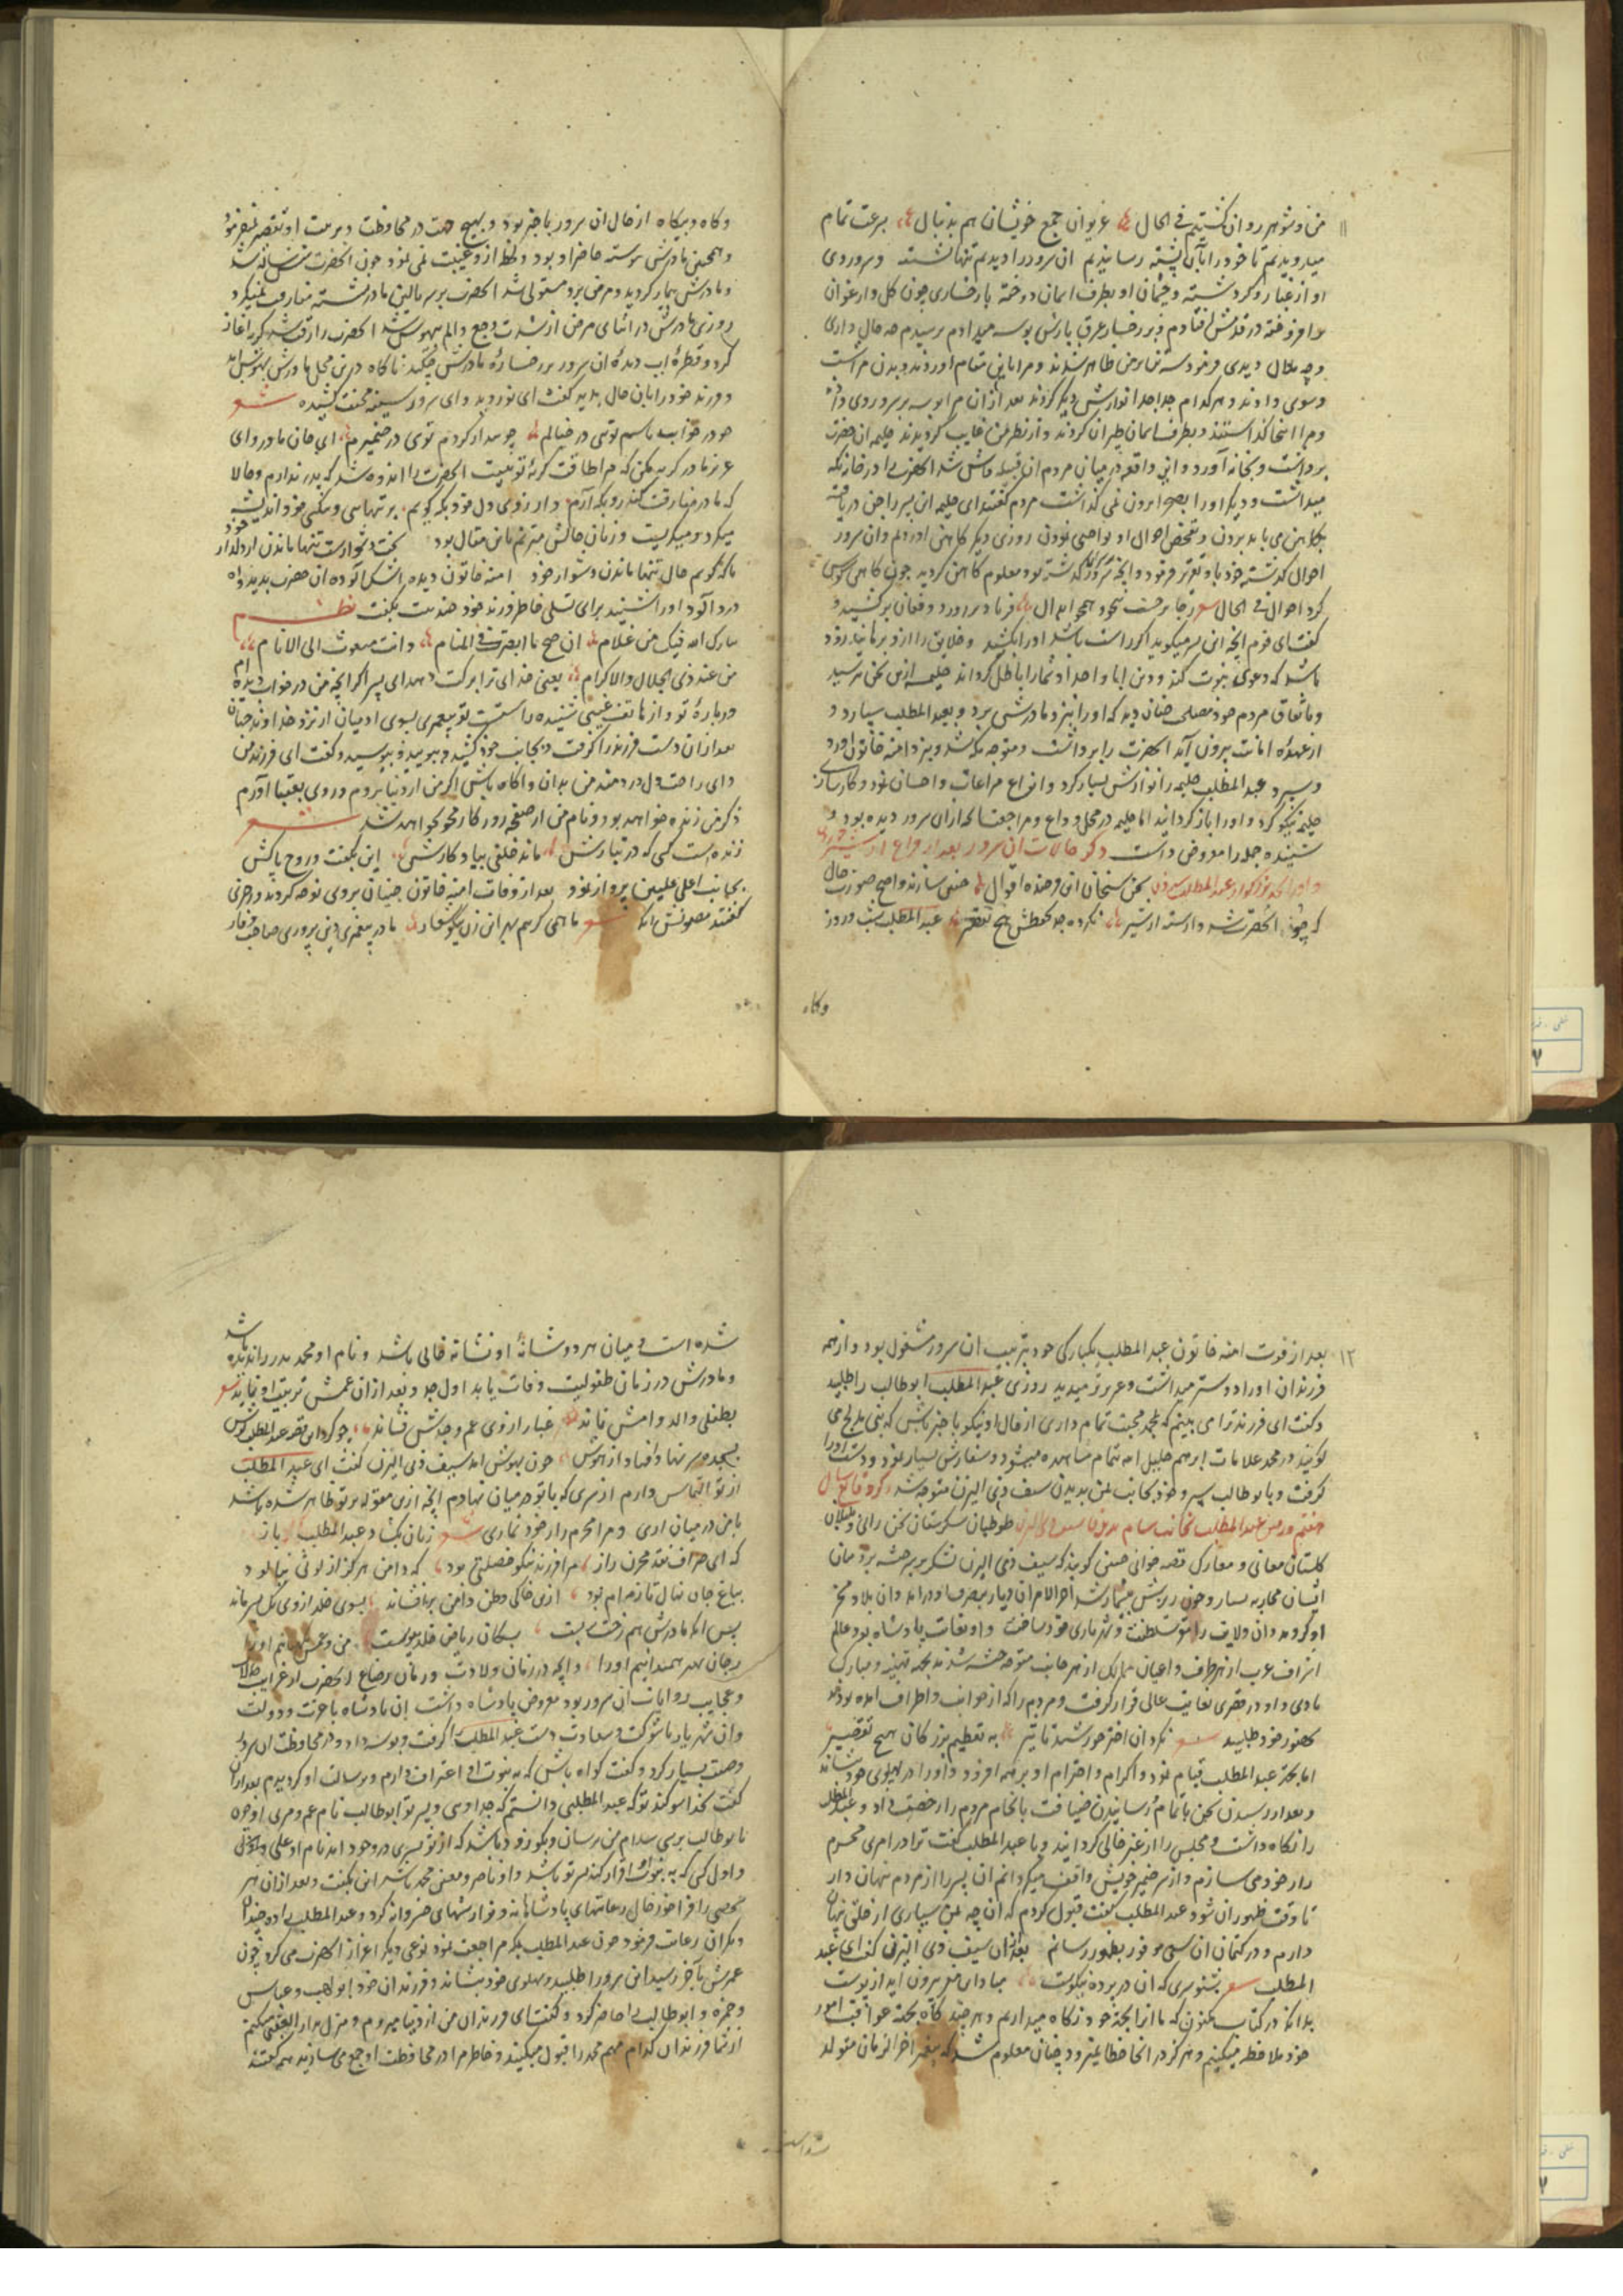 من و شوهر روان گشتیم فی الحال غریوان جمع خویشان هم بدنبال بسرعت تمام
میدویدیم تا خود را بآن پشته رسانیدیم ان سرور را دیدیم تنها نشسته و سر و روی
او از غبار رو کرد نشسته و چشمان او بطرف اسمان دوخته با رخساری چون کل و ارغوان
برافروخته در قدمش افتادم و بر رخسار عرق بارش بوسه میدادم پرسیدم چه حال داری
و چه ملال دیدی فرمود سه نفر بر من ظاهر شدند و مرا باین مقام اوردند و بدن مرا شست
و شوی دادند و هر کدام جدا جدا نوازش دیگر کردند بعد از ان مرا بوسه بر سر و روی دادند
و مرا اینجا گذاشتند و بطرف اسمان طیران کردند و از نظر من غایب گردیدند حلیمه ان حضرت
برداشت و بخانه آورد و این واقعه در میان مردم ان قبیله فاش شد الحضرت را در خانه نکه
میداشت و دیگر او را بصحرا برون نمی گذاشت مردم گفتند ای حلیمه این پسر را جن دریافته
بکاهن می باید بردن و تفحص احوال او بواجبی نمودن روزی دیگر کاهن اوردم و ان سرور
احوال گذشته خود باو تقریر فرمود و انچه بر وی گذشته بود معلوم کاهن گردید چون کاهن
کرد احوال فی الحال ز جا برجست بیخود همچو ابدال فریاد براورد و فغان برکشید و
گفت ای قوم انچه این پسر میگوید اگر راست باشد او را بکشید و خلایق را از و برهانید زود
باشد که دعوی نبوت کند و دین ابا و اجداد شما را باطل گرداند حلیمه ازین سخن ترسید
و باتفاق مردم خود مصلحت چنان دید که او را بنزد مادرش برد و بعبد المطلب سپارد و
از عهده امانت بیرون آید الحضرت را برداشت و متوجه مکه شد و بنزد امنه خاتون اورد
و سپرد عبد المطلب حلیمه را نوازش بسیار کرد و انواع مراعات و احسان نمود و کارسازی
حلیمه نیکو کرد و او را باز گردانید اما حلیمه در محل وداع و مراجعت انچه از ان سرور دیده بود و
شنیده جمله را معروض داشت ذکر حالات ان سرور بعد از فراغ از شیر خوردن
سخن سنجان این فرخنده اقوال چنین سازند واضح صورت حال
که چون الحضرت شد وارسته از شیر نکرده جد بحفظش هیچ تقصیر عبد المطلب شب و روز
وکاه
وکاه و بیکاه از حال ان سرور باخبر بود و بهیچ جهت در محافظت و تربیت او تقصیر نمیفرمود
و همچنین مادرش پیوسته حاضر او بود و یک لحظه از و غیبت نمی نمود چون الحضرت شش ساله شد
و مادرش بیمار گردید و مرض برو مستولی شد الحضرت بر سر بالین مادر نشسته مفارقت نمیکرد
روزی مادرش در اثنای مرض از شدت وجع و الم بیهوش شد الحضرت را رقت شد گریه اغاز
کرد و قطره اب دیده ان سرور بر رخساره مادرش چکید ناکاه درین محل مادرش بهوش امد
و فرزند خود را باین حال بدید گفت ای نور دیده وای سرور سینه محنت کشیده شعر
چو در خوابم باسم توی در خیالم چو بیدار کردم توی در ضمیرم ای جان مادر و ای
عزیز مادر گریه مکن که مرا طاقت گریه تو نیست الحضرت را اندوه شد که پدر ندارم و حالا
که مادر مفارقت کند رو بکه آرم و از زوی دل خود بکه کویم بر تنهایی و بیکسی خود اندیشه
میکرد و میگریست و زبان حالش مترنم باین مقال بود سخت دشوارست تنها ماندن از دلدار خود
با که گویم حال تنها ماندن دشوار خود امنه خاتون دیده اشک آلوده ان حضرت بدید و اه
درد آلود او را شنید برای تسلی خاطر فرزند خود چند بیت بگفت نظم
بارک الله فیک من غلام ان صح ما ابصرت فی المنام و انت مبعوث الی الانام
من عند ذی الجلال والاکرام یعنی خدای ترا برکت دهد ای پسر اگر انچه من در خواب دیده ام
درباره تو و از هاتف غیبی شنیده راست است تو پیغمبری بسوی ادمیان از نزد خداوند جهان
بعد از ان دست فرزند را گرفت و بجانب خود کشید و ببویید و ببوسید و گفت ای فرزند من
وای راحت دل دردمند من بدان و اگاه باش اگر من از دنیا بروم و روی بعقبا آورم
ذکر من زنده خواهد بود و نام من از صفحه روزگار محو نخواهد شد شعر
زنده است کسی که در تبارش ماند خلفی بیادکارش این بگفت و روح پاکش
بجانب اعلی علیین پرواز نمود بعد از وفات امنه خاتون جنیان بروی نوحه کردند و مرثیه
گفتند مضمونش انکه شعر ما همی گریم بهر ان زن نیکو شعار مادر پیغمبری دین پروری صاحب وقار
۱۲
بعد از فوت امنه خاتون عبد المطلب بیکبارگی خود بتربیت ان سرور مشغول بود و از همه
فرزندان او را دوستر میداشت و عزیزتر میدید روزی عبد المطلب ابوطالب را طلبید
و گفت ای فرزند ترا می بینم که بمحمد محبت تمام داری از حال او نیکو باخبر باش که بنی مدلج می
گویند در محمد علامات ابرهیم خلیل الله تمام مشاهده میشود و سفارش بسیار نمود و دست او را
گرفت و بابوطالب سپرد و خود بجانب یمن بدیدن سیف ذی الیزن متوجه شد ذکر وقایع سال
هفتم و رفتن عبد المطلب بجانب طوطیان شکرستان سخن رانی و بلبلان
گلستان معانی و معارک قصه خوانی چنین گویند که سیف ذی الیزن لشکر بر سر حبشه برد میان
ایشان محاربه بسیار و خون ریزش بیشمار شد اخر الامر ان دیار بتصرف او درامد و ان بلاد مسخر
او گردید و ان ولایت را تختگاه سلطنت و شهریاری خود ساخت و او بغایت پادشاه بود عالم
اشراف عرب از هر طرف و اعیان ممالک از هر جانب متوجه حبشه شدند بجهة تهنیت و مبارک
بادی و او در قصری بغایت عالی قرار گرفت و مردم را که از جوانب و اطراف امده بودند
بحضور خود طلبید شعر نکرد ان اختر خورشید تاثیر به تعظیم بزرگان هیچ تقصیر
اما بجهة عبد المطلب قیام نمود و اکرام و احترام او بر همه افزود و او را در پهلوی خود بنشاند
و بعد از رسیدن سخن باتمام و رسانیدن ضیافت بانجام مردم را رخصت داد و عبد المطلب
را نگاه داشت و مجلس را از غیر خالی گردانید و با عبد المطلب گفت ترا در امری محرم
راز خود می سازم و از سر ضمیر خویش واقف میگردانم ان سر را از مردم پنهان دار
تا وقت ظهور ان شود عبد المطلب گفت قبول کردم که ان چه بمن سپاری از خلق پنهان
دارم و در کتمان ان سعی موفور بظهور رسانم بعد از ان سیف ذی الیزن گفت ای عبد
المطلب شعر بشنو سری که ان در پرده نیکوست مبادا مغز بیرون اید از پوست
بدانکه در کتاب مکنون که ما از ابجهة خود نگاه میداریم و هر چند گاه بجهة عواقب امور
خود ملاحظه میکنیم و هرگز در انجا خطا نمیرود چنان معلوم شد که پیغمبر اخر الزمان متولد
شده است
شده است و میان هر دو شانه او نشانه خالی باشد و نام او محمد پدر را ندیده باشد
و مادرش در زمان طفولیت وفات یابد اول جد و بعد از ان عمش تربیت او نماید شعر
بطفلی والد و امش نماند غبار از روی عم و جدش فشاند چو کرد این قصه عبد المطلب گوش
بسجده سر نهاد و افتاد از هوش چون بهوش امد سیف ذی الیزن گفت ای عبد المطلب
از تو التماس دارم از سری که با تو در میان نهادم انچه ازین مقوله بر تو ظاهر شده باشد
با من در میان اری و مرا محرم راز خود شماری شعر زبان بگشاد عبد المطلب باز
که ای صراف نقد مخزن راز مرا فرزند نیکو خصلتی بود که دامن هرگز از لوثی نیالود
بباغ جان نهال تازه ام بود ازین خاکی وطن دامن برافشاند بسوی خلد از وی یک پسر ماند
پس انکه مادرش هم رخت بست بسکان ریاض خلد پیوست من و عمش
بجان مهر همدانیم او را و انچه در زمان ولادت و زمان رضاع الحضرت از غرایب حالات
و عجایب روایات ان سرور بود معروض پادشاه داشت ان پادشاه با عزت و دولت
وان شهریار با شوکت و سعادت دست عبد المطلب را گرفت و بوسه داد و در محافظت ان سرور
وصیت بسیار کرد و گفت گواه باش که به نبوت او اعتراف دارم و برسالت او گرویدم بعد از ان
گفت بخدا سوگند تو که عبد المطلبی دانستم که جد اوی و پسر تو ابوطالب نام عم و مربی او چون
با بوطالب برسی سلام من برسان و بگو زود باشد که از تو پسری در وجود اید نام او علی
و اول کسی که به نبوت او اقرار کند پسر تو باشد و او ناصر و معین محمد باشد این بگفت و بعد از ان هر
شخصی را فراخور حال رعایتهای پادشاهانه و نوازشهای خسروانه کرد و عبد المطلب را ده چندان
دیگران رعایت فرمود چون عبد المطلب بمکه مراجعت نمود نوعی دیگر اعزاز الحضرت می کرد چون
عمرش بآخر رسید ان سرور را طلبید و پهلوی خود بنشاند و فرزندان خود ابو لهب و عباس
و حمزه و ابوطالب را حاضر کرد و گفت ای فرزندان من از دنیا میروم و منزل بدار العقبی میکنم
از شما فرزندان کدام مهم محمد را قبول میکنید و خاطر مرا در محافظت او جمع می سازید همه گفتند